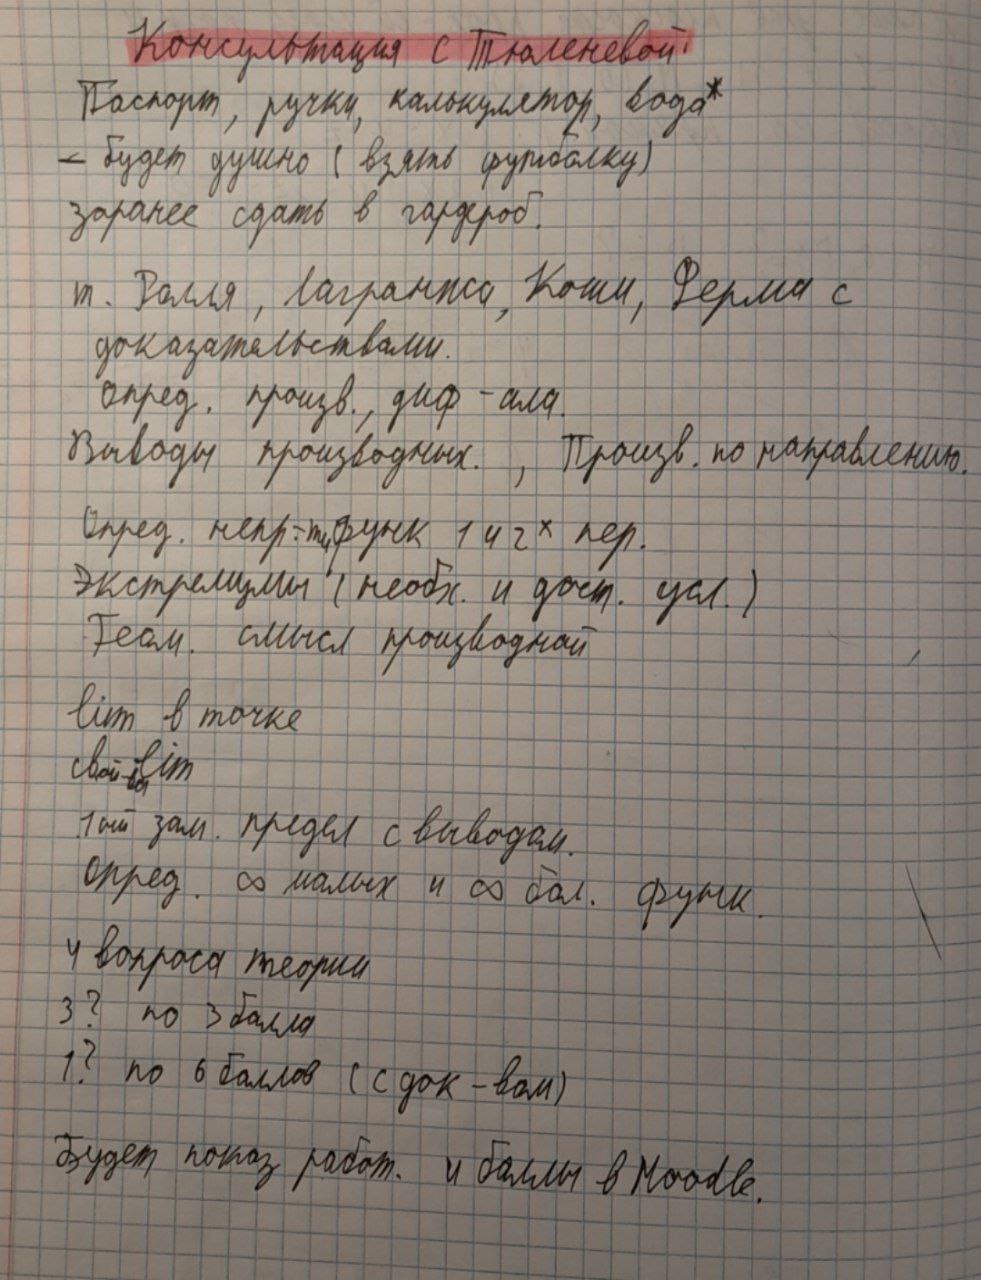 Консультация с Тюленевой.
Паспорт, ручки, калькулетор, вода*
– будет душно (взять футболку)
заранее сдать в гардероб.
т. Ролля, Лагранжа, Коши, Ферма с
доказательствами.
Опред. произв., диф-ала.
Выводы производных. , Произв. по направлению.
Опред. непр-ти функ 1 и 2х пер.
Экстремумы (необх. и дост. усл.)
Геом. смысл производной
lim в точке
свой-ва lim
1ый зам. предел с выводом.
Опред. ∞ малых и ∞ бол. функ.
4 вопроса теории
3? по 3 балла
1? по 6 баллов (с док-вом)
Будет показ работ. и баллы в Moodle.